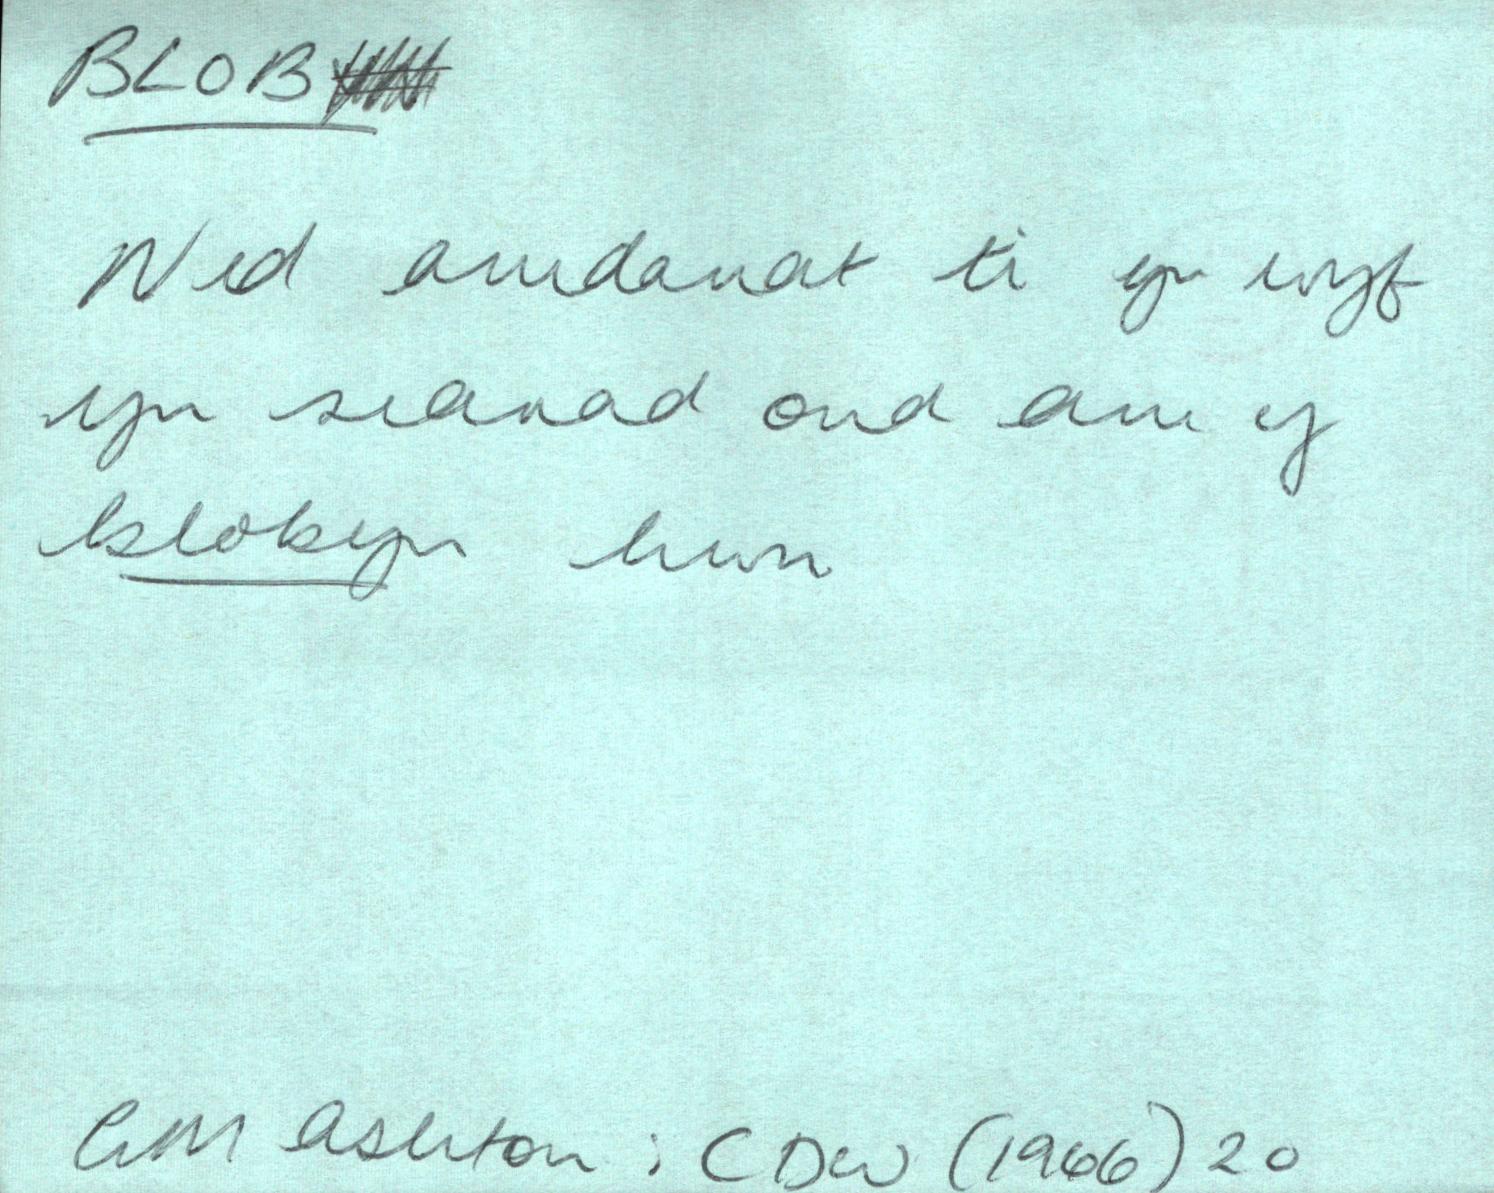 BLOB
Nid amdanat ti yr wyf
yn siarad ond am y
blobyn hwn
GM Ashton : CDW (1966) 20